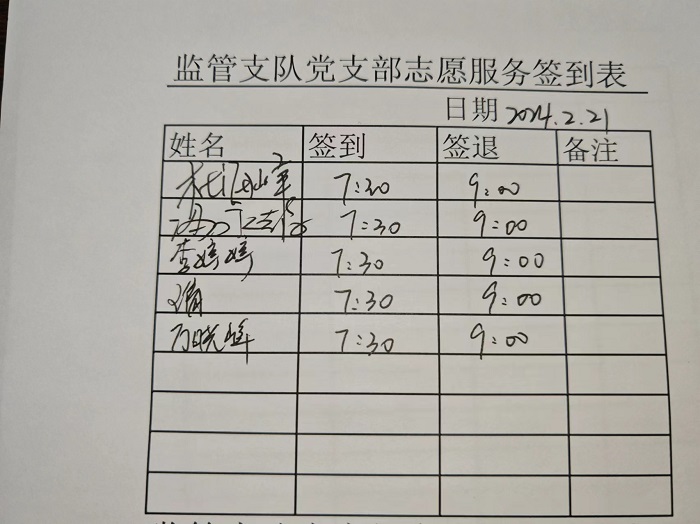 监管支队党支部志愿服务签到表
日期 2024.2.21
姓名 签到 签退 备注
7:30 9:00
7:30 9:00
李婷婷 7:30 9:00
7:30 9:00
万晓峰 7:30 9:00